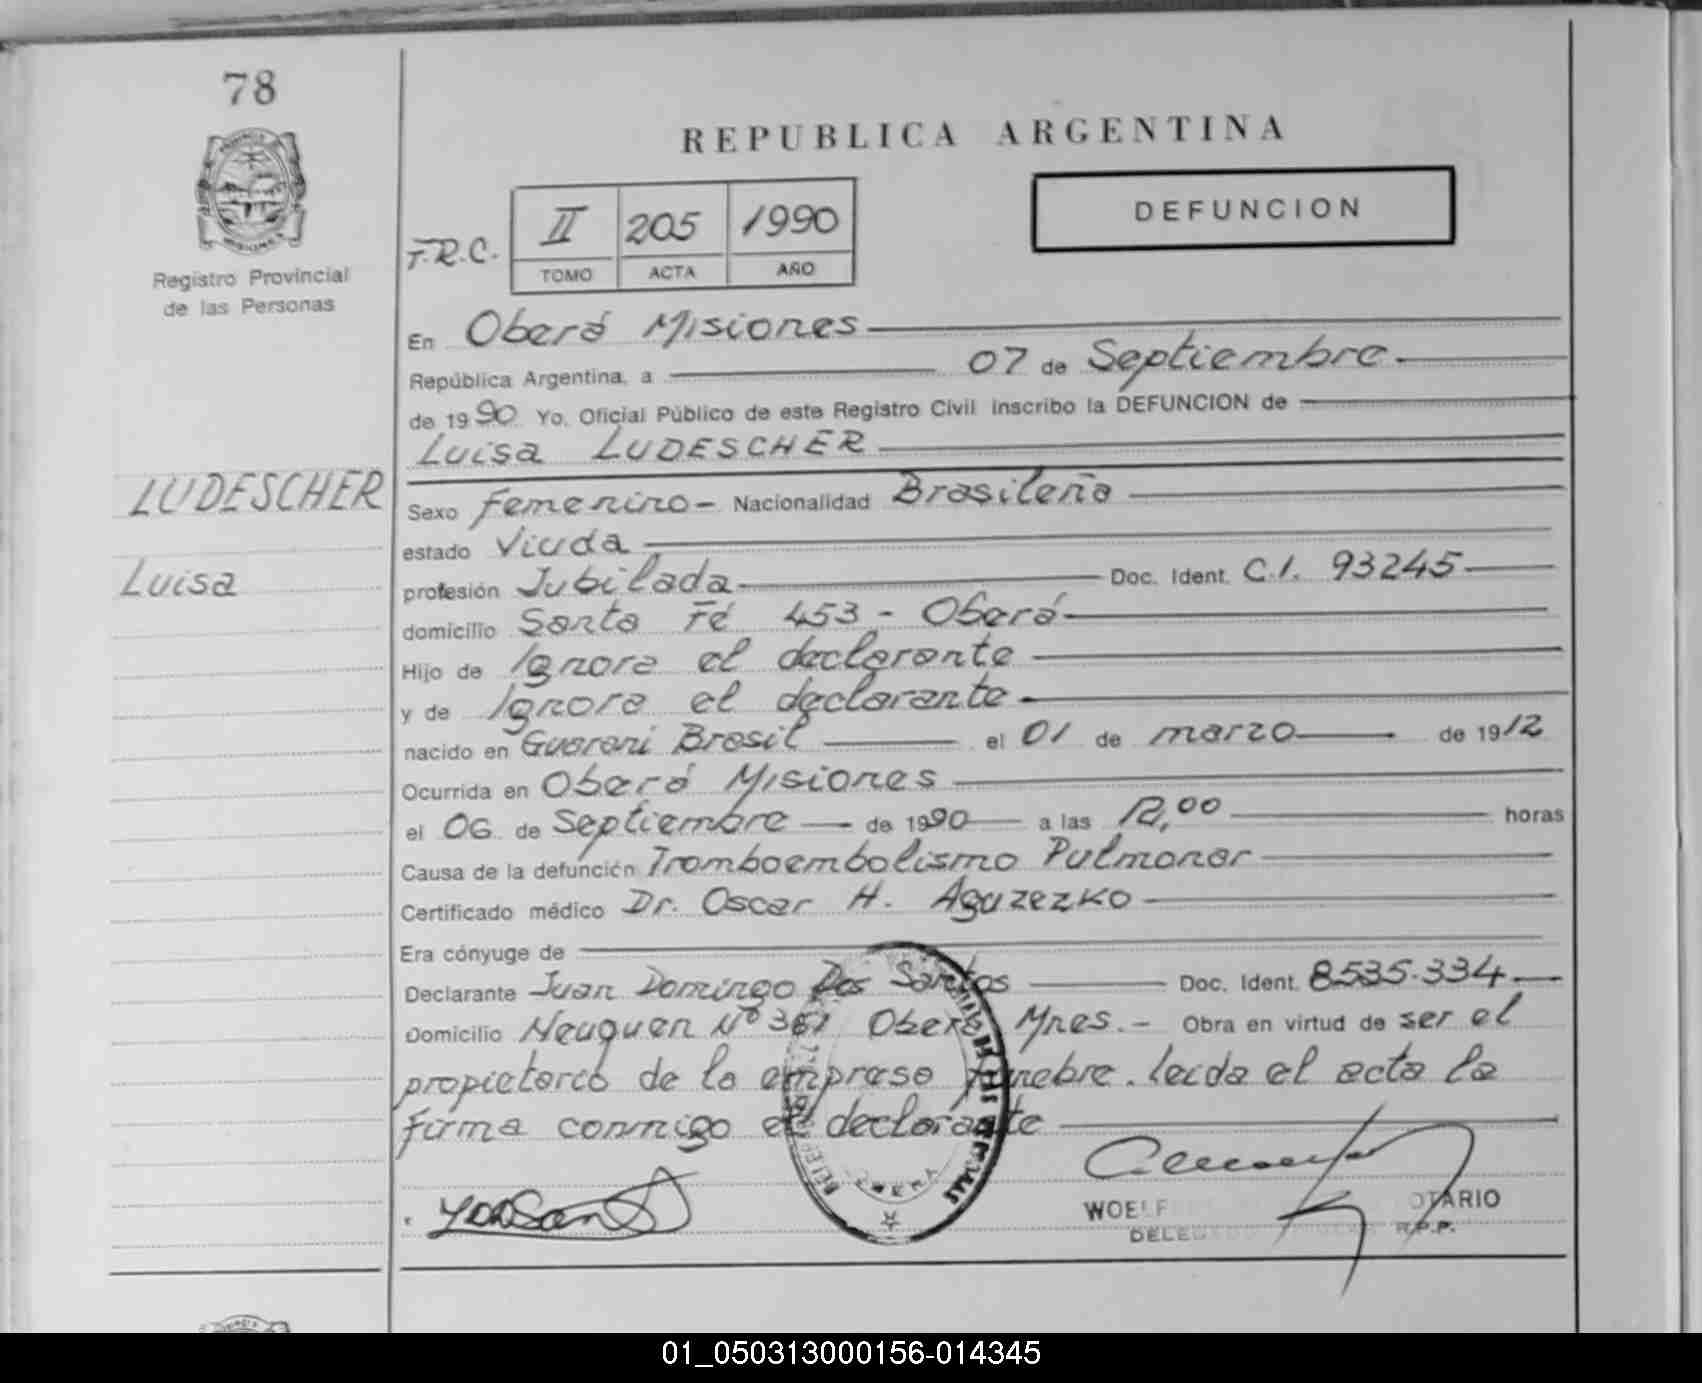 78
Registro Provincial
de las Personas
LUDESCHER
Luisa
REPUBLICA ARGENTINA
DEFUNCION
F.R.C. II 205 1990
TOMO ACTA AÑO
En Oberá Misiones
República Argentina, a 07 de Septiembre.
de 1990 Yo, Oficial Público de este Registro Civil inscribo la DEFUNCION de
Luisa LUDESCHER
Sexo femenino - Nacionalidad Brasileña
estado Viuda
profesión Jubilada Doc. Ident. C.I. 93245
domicilio Santa Fé 453 - Oberá
Hijo de Ignora el declarante
y de Ignora el declarante
nacido en Guarani Brasil el 01 de marzo de 1912
Ocurrida en Oberá Misiones
el 06 de Septiembre de 1990 a las 12,00 horas
Causa de la defunción Tromboembolismo Pulmonar
Certificado médico Dr. Oscar H. Aguzezko
Era cónyuge de
Declarante Juan Domingo Dos Santos Doc. Ident. 8535.334
Domicilio Neuquen Nº 361 Oberá Mnes. - Obra en virtud de ser el
propietario de la empresa funebre. leida el acta la
firma conmigo el declarante
01_050313000156-014345